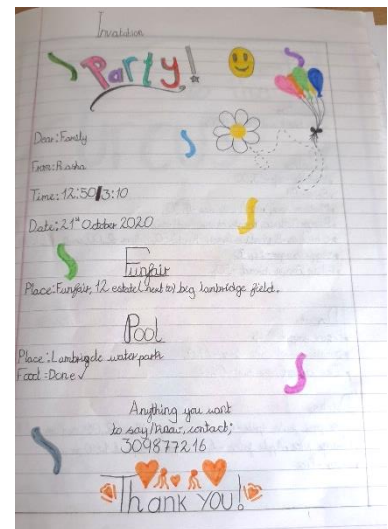 Invitation
Party!
Dear: Family
From: Rasha
Time: 12:50/3:10
Date: 21st October 2020
Funfair
Place: Funfair, 12 estate (next to) big lanbridge field.
Pool
Place: Lambrigde water park
Food: Done ✓
Anything you want
to say/know, contact;
309877216
Thank you!